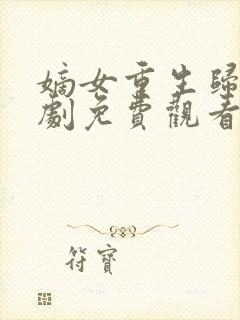 嫡女重生歸
劇免費觀看
符寶